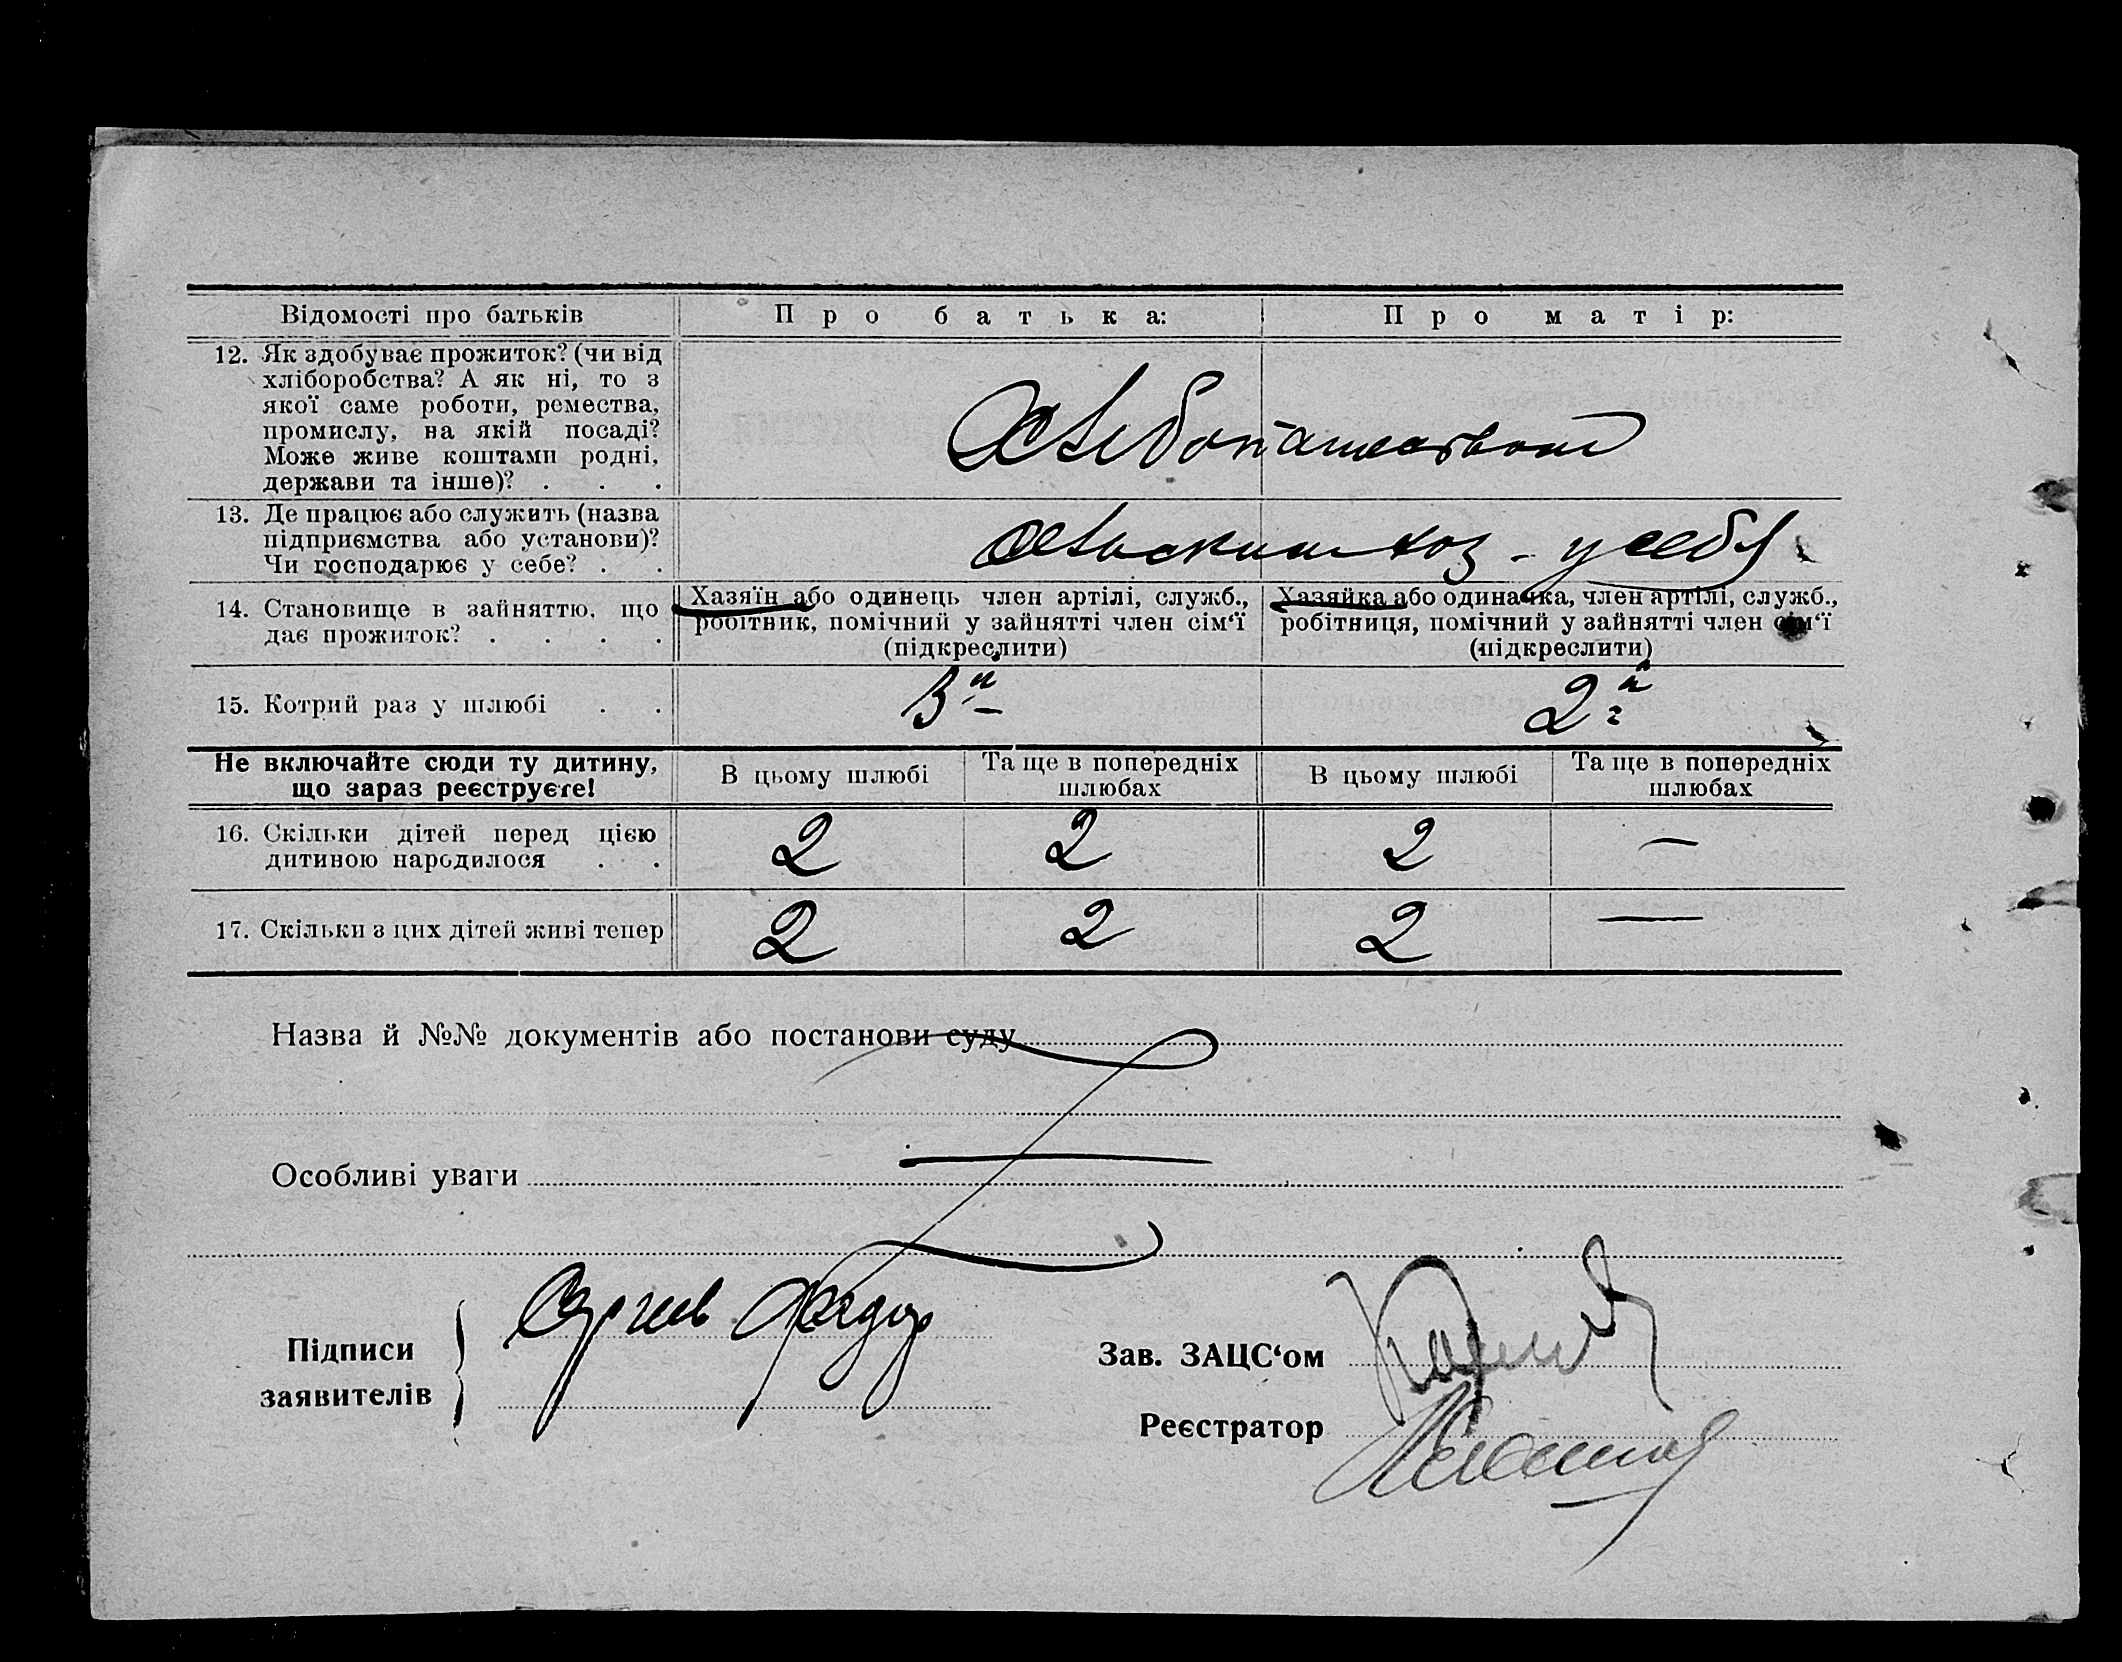 Відомості про батьків
Про батька:
Про матір:
12. Як здобуває прожиток? (чи від
хліборобства? А як ні, то з
якої саме роботи, ремества,
промислу, на якій посаді?
Може живе коштами родні,
держави та інше)? . . .
Хлебопашеством
13. Де працює або служить (назва
підприємства або установи)?
Чи господарює у себе? . .
сельским хоз - у себя
14. Становище в зайняттю, що
дає прожиток? . . . .
Хазяїн або одинець член артілі, служб.,
робітник, помічний у зайнятті член сім‘ї
(підкреслити)
Хазяйка або одиначка, член артілі, служб.,
робітниця, помічний у зайнятті член сім‘ї
(підкреслити)
15. Котрий раз у шлюбі . .
3й
2й
Не включайте сюди ту дитину,
що зараз реєструєте!
В цьому шлюбі
Та ще в попередніх
шлюбах
В цьому шлюбі
Та ще в попередніх
шлюбах
16. Скільки дітей перед цією
дитиною народилося . .
2 2 2 —
17. Скільки з цих дітей живі тепер
2 2 2 —
Назва й №№ документів або постанови суду
Особливі уваги
Підписи
заявителів
Сергеев Федор
Зав. ЗАЦС‘ом
Реєстратор